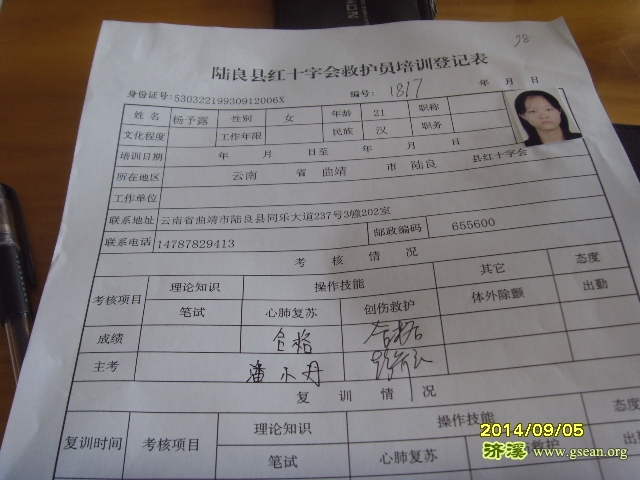 98
陆良县红十字会救护员培训登记表
身份证号:53032219930912006X 编号: 1817 年 月 日
姓名 杨予露 性别 女 年龄 21 职称
文化程度 工作年限 民族 汉 职务
培训日期 年 月 日至 年 月 日
所在地区 云南 省 曲靖 市 陆良 县红十字会
工作单位
联系地址 云南省曲靖市陆良县同乐大道237号3幢202室
联系电话 14787829413 邮政编码 655600
考核情况
考核项目 理论知识 操作技能 其它 态度
笔试 心肺复苏 创伤救护 体外除颤 出勤
成绩 合格 合格
主考 潘小丹
复训情况
复训时间 考核项目 理论知识 操作技能 态度
笔试 心肺复苏 救护 出勤
2014/09/05
济溪 www.gsean.org